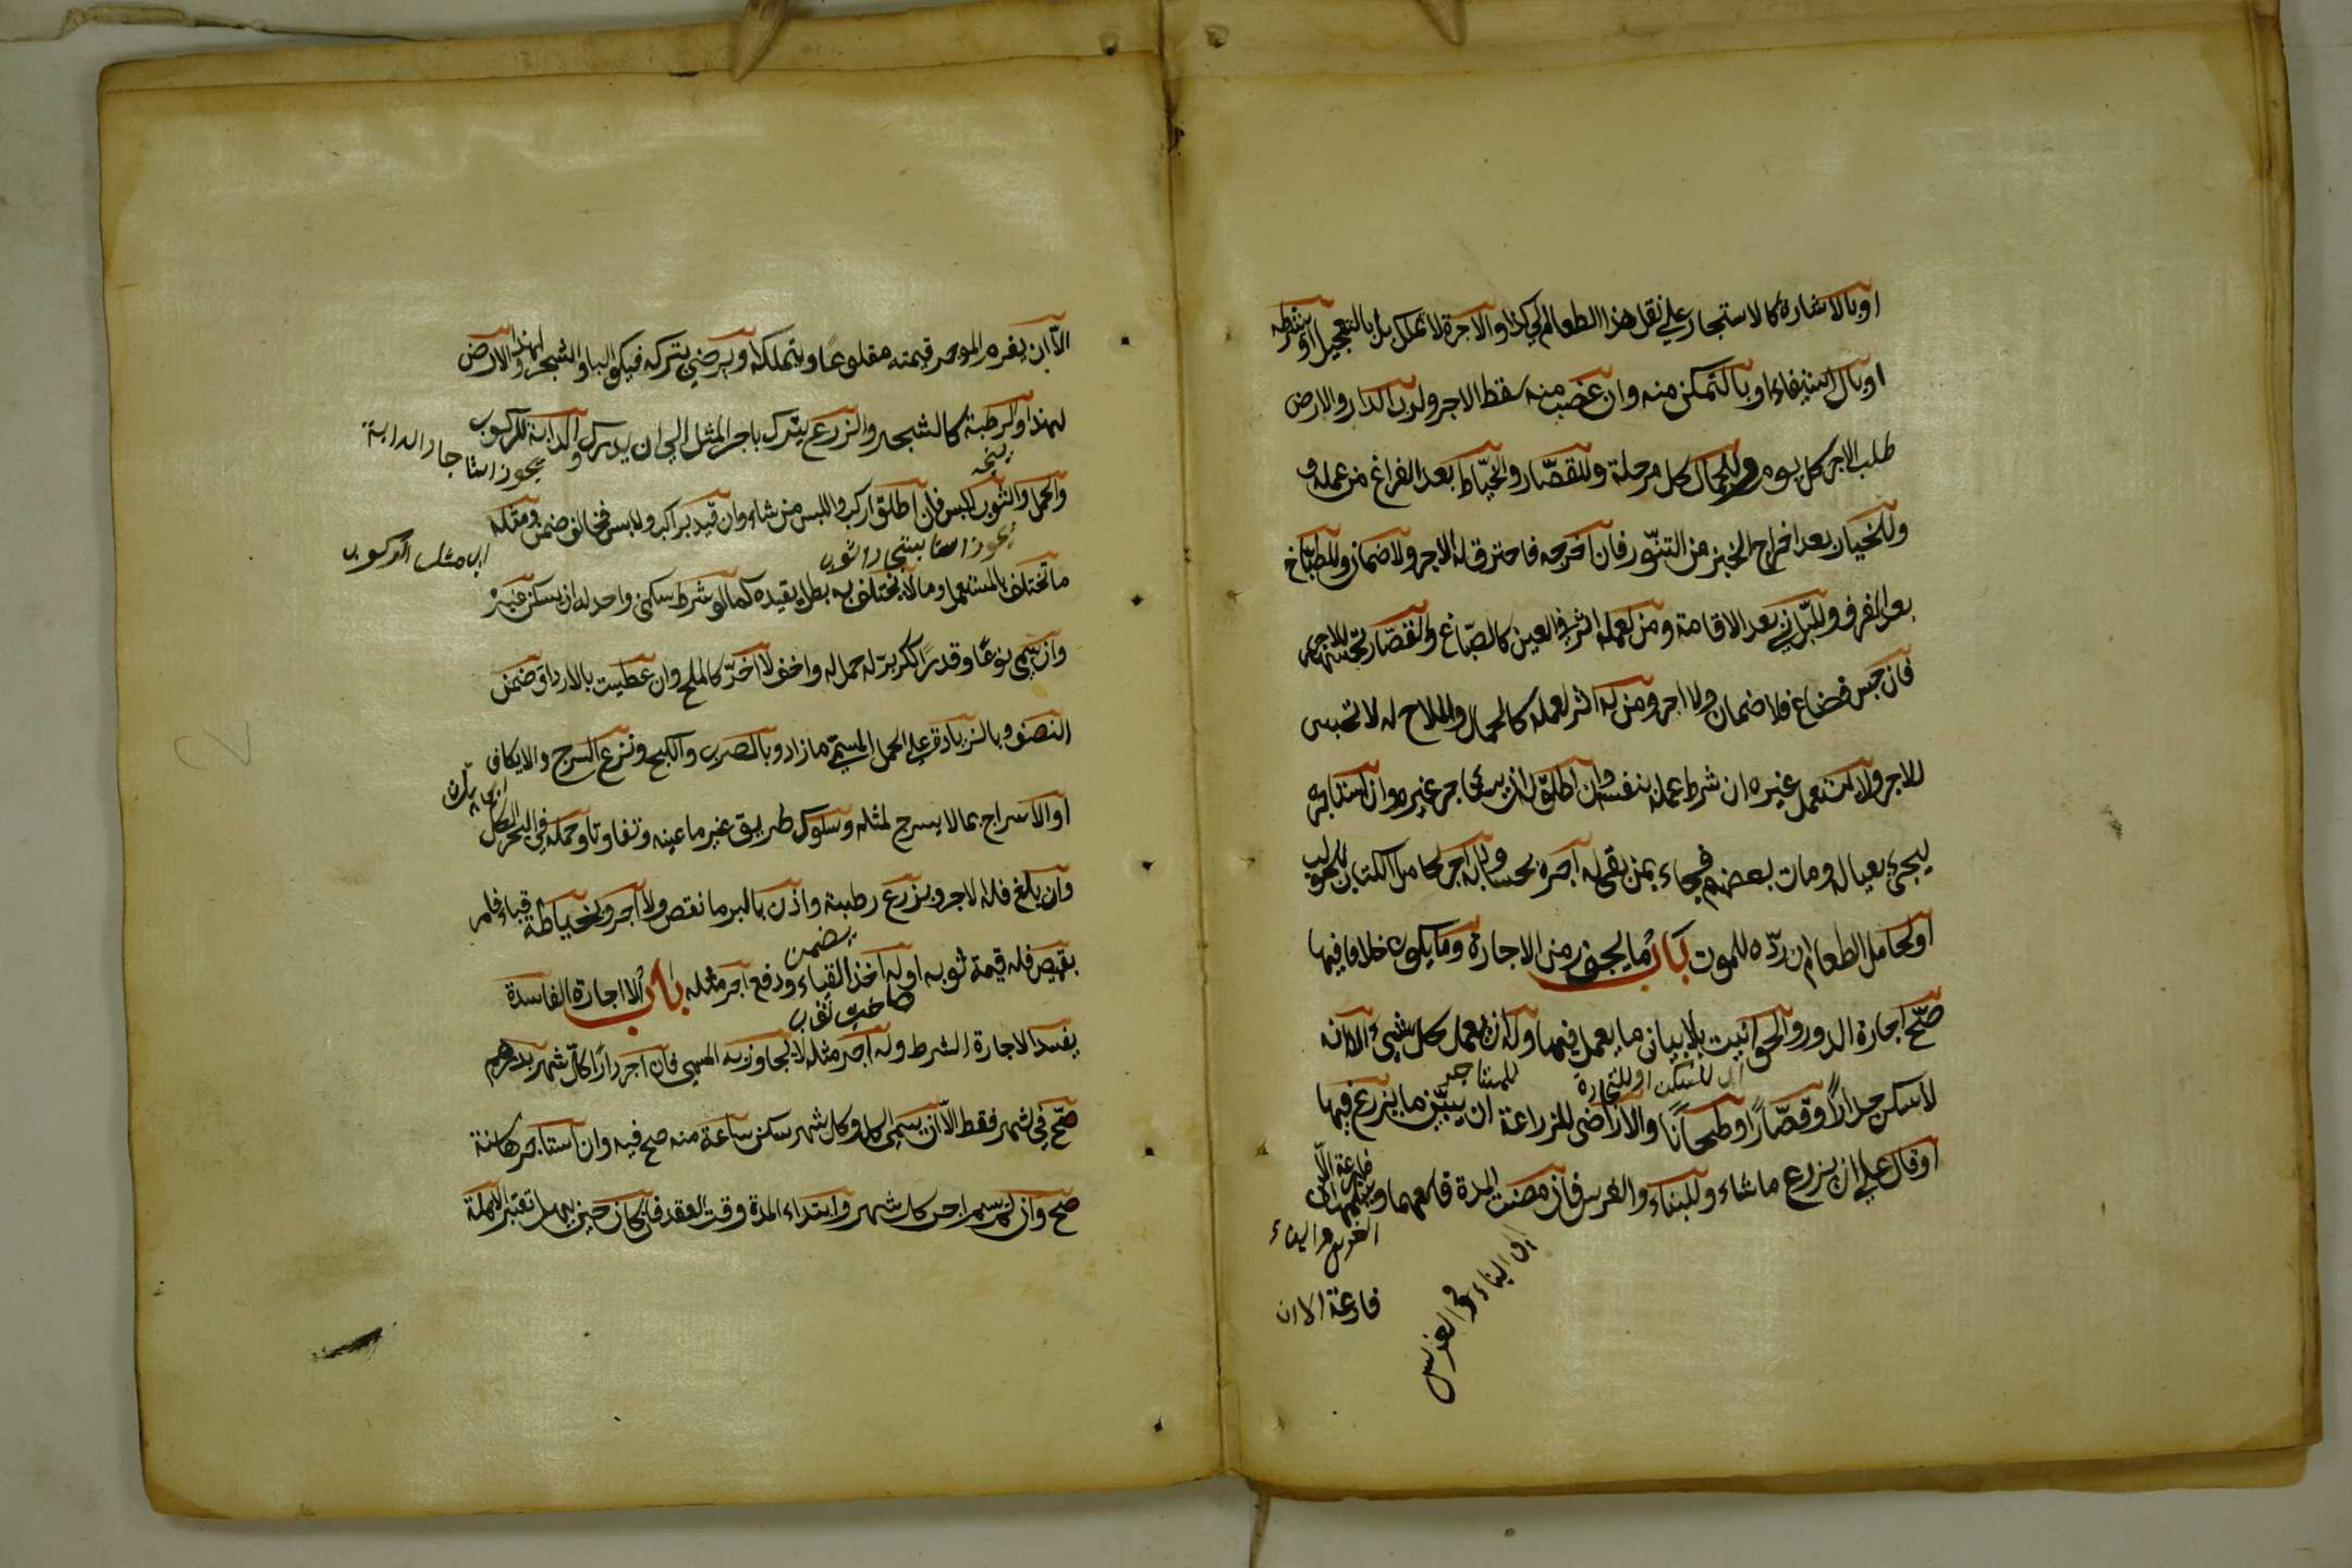 او بالاشارة كالاستجار على نقل هذا الطعام الى كذا والاجرة لا تملك بل بالتعجيل او بشرطه
او بالاستيفاء او بالتمكن منه وان غصب منه سقط الاجر ولرب الدار والارض
طلب الاجر كل يوم وللجمال كل مرحلة وللقصّار والخيّاط بعد الفراغ من عمله و
وللخباز بعد اخراج الخبز من التنّور فان اخرجه فاحترق له الاجر ولا ضمان وللطبّاخ
بعد الغرف وللبّان بعد الاقامة ومن لعمله اثر في العين كالصبّاغ والقصّار تحبسها للاجر
فان حبس فضاع فلا ضمان ولا اجر ومن لا اثر لعمله كالحمال والملاح لا تحبس
للاجر ولا يستعمل غيره ان شرط عمله بنفسه وان اطلق له ان يستاجر غيره وان استاجره
ليجيء بعياله ومات بعضهم فجاء بمن بقى له اجره بحسابه ولا اجر لحامل الكتاب للجواب
او لحامل الطعام ان ردّه للموت باب ما يجوز من الاجارة وما يكون خلافا فيها
صحّ اجارة الدور والحوانيت بلا بيان ما يعمل فيها وله ان يعمل كل شيء الا انه
اى للسكن او للتجارة
للمستاجر
لا يسكن حدادًا وقصّارًا او طحانًا والاراضى للزراعة ان يبيّن ما يزرع فيها
او قال على ان يزرع ما شاء وللبناء والغرس فان مضت المدة قلعهما وسلمها
فارغة الا
اى البناء والغرس
الغرس والبناء
فارغة الا ان
الّا ان يغرم الموجر قيمته مقلوعًا ويتملكه او يرضى بتركه فيكون البناء والشجر لهذا والارض
لهذا والرطبة كالشجر والزرع يترك باجر المثل الى ان يدرك والدابة للركوب
يجوز استاجار الدابة
والحمل والثوب للبس فان اطلق اركب والبس من شاء وان قيد براكب ولابس فخالف ضمن ومثله
اى مثل الركوب
ما تختلف بالمستعمل وما لا يختلف به بطل تقيده كما لو شرط سكنى واحد له ان يسكن غيره
وان سمى نوعًا وقدرًا ككر برّ له حمل مثله واخف لا اضر كالملح وان عطبت بالارداف ضمن
النصف وبالزيادة على الحمل المسمى ما زاد وبالضرب والكبح ونزع السرج والايكاف
او الاسراج بما لا يسرج لمثله وسلوك طريق غير ما عينه وتفاوتا وحمله في البحر الكل
وان بلغ فله الاجر وبزرع رطبة واذن بالبر ما نقص ولا اجر وبخياطة قباء فامر
يضمن
بقميص فله قيمة ثوبه او له اخذ القباء ودفع اجر مثله باب الاجارة الفاسدة
صاحب ثواب
يفسد الاجارة الشرط وله اجر مثله لا يجاوز به المسمى فان اجر دارًا كلّ شهر بدرهم
صحّ في شهر فقط الّا ان يسمى الكل وكل شهر سكن ساعة منه صح فيه وان استاجرها سنة
صح وان لم يسم اجر كل شهر وابتداء المدة وقت العقد فان كان حين يهل تعتبر الاهلة